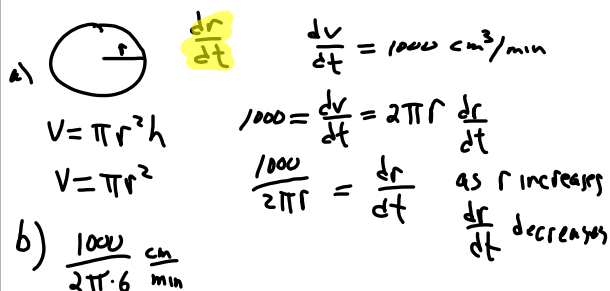 dr/dt
dv/dt = 1000 cm³/min
a) r
V = πr²h
1000 = dv/dt = 2πr dr/dt
V = πr²
1000/2πr = dr/dt as r increases
dr/dt decreases
b) 1000/2π·6 cm/min